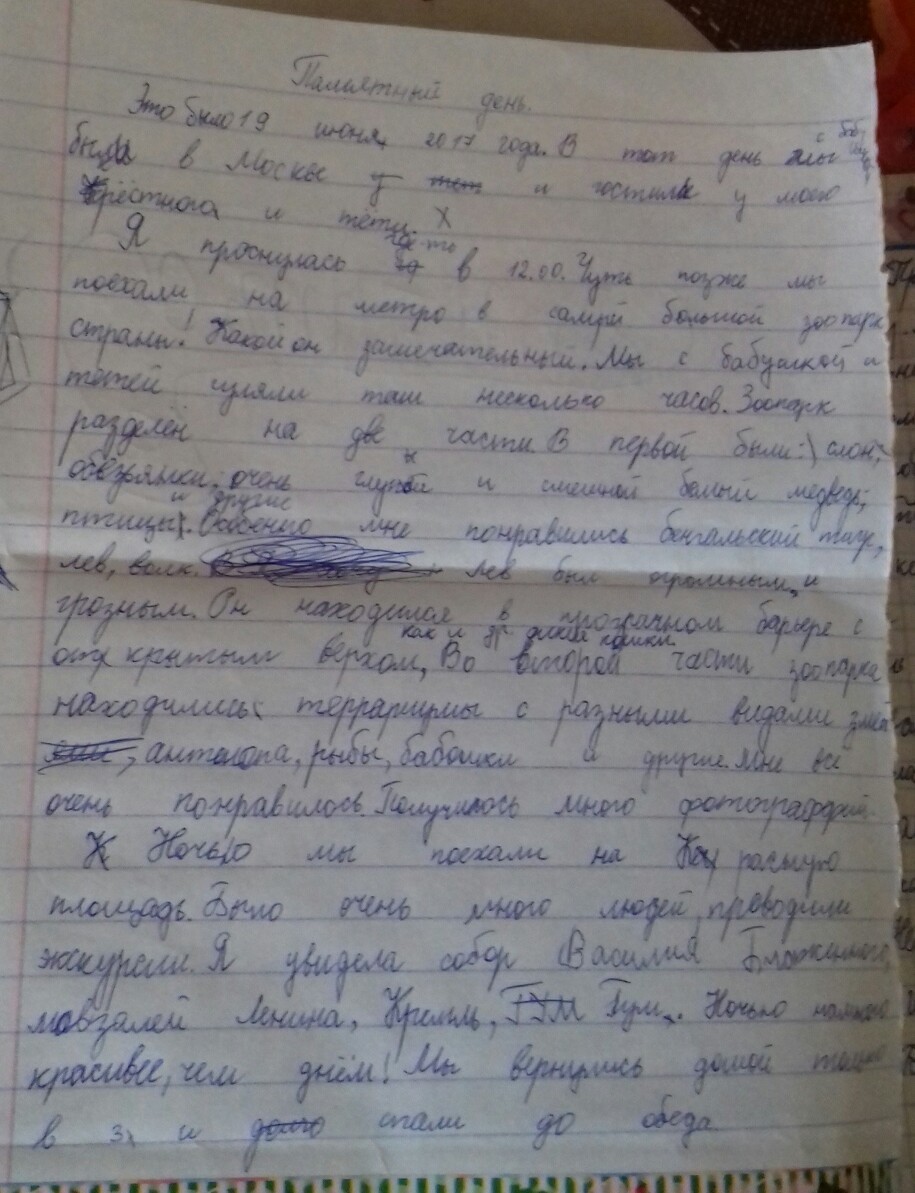 Памятный день.
Это было 19 июня 2017 года. В тот день мы с
были в Москве у тёт и гостили у моего
крёстного и тёти.
Я проснулась где-то в 12.00. Чуть позже мы
поехали на метро в самый большой зоопарк
страны! Какой он замечательный. Мы с бабушкой и
тётей гуляли там несколько часов. Зоопарк
разделён на две части. В первой были: слон,
обезьянки, очень глупый и смешной белый медведь,
птицы и другие. Особенно мне понравились бенгальский тигр,
лев, волк. Лев был огромным и
грозным. Он находился в прозрачном барьере с
открытым верхом, как и др. дикие кошки. Во второй части зоопарка
находились: террариумы с разными видами змей
, антилопа, рыбы, бабочки и другие. Мне всё
очень понравилось. Получилось много фотографий.
Ночью мы поехали на Красную
площадь. Было очень много людей, проводили
экскурсии. Я увидела собор Василия Блаженного,
мавзалей Ленина, Кремль, ГУМ Гум. Ночью намного
красивее, чем днём! Мы вернулись домой только
в 3 и долго спали до обеда.